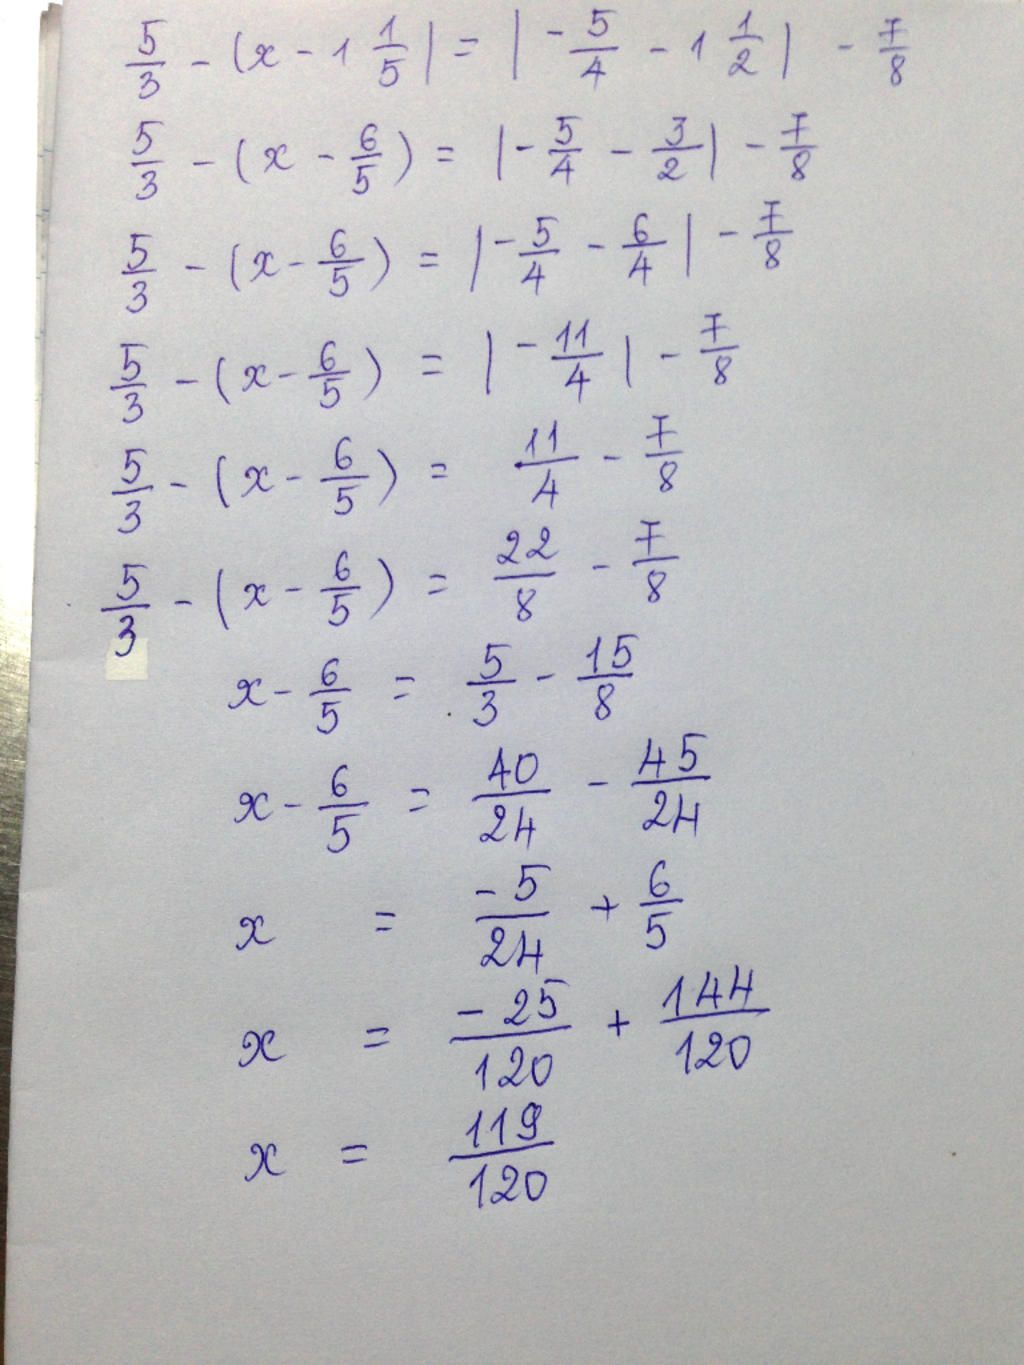 5/3 - (x - 1 1/5| = |-5/4 - 1 1/2| - 7/8
5/3 - (x - 6/5) = |-5/4 - 3/2| - 7/8
5/3 - (x - 6/5) = |-5/4 - 6/4| - 7/8
5/3 - (x - 6/5) = |-11/4| - 7/8
5/3 - (x - 6/5) = 11/4 - 7/8
5/3 - (x - 6/5) = 22/8 - 7/8
x - 6/5 = 5/3 - 15/8
x - 6/5 = 40/24 - 45/24
x = -5/24 + 6/5
x = -25/120 + 144/120
x = 119/120